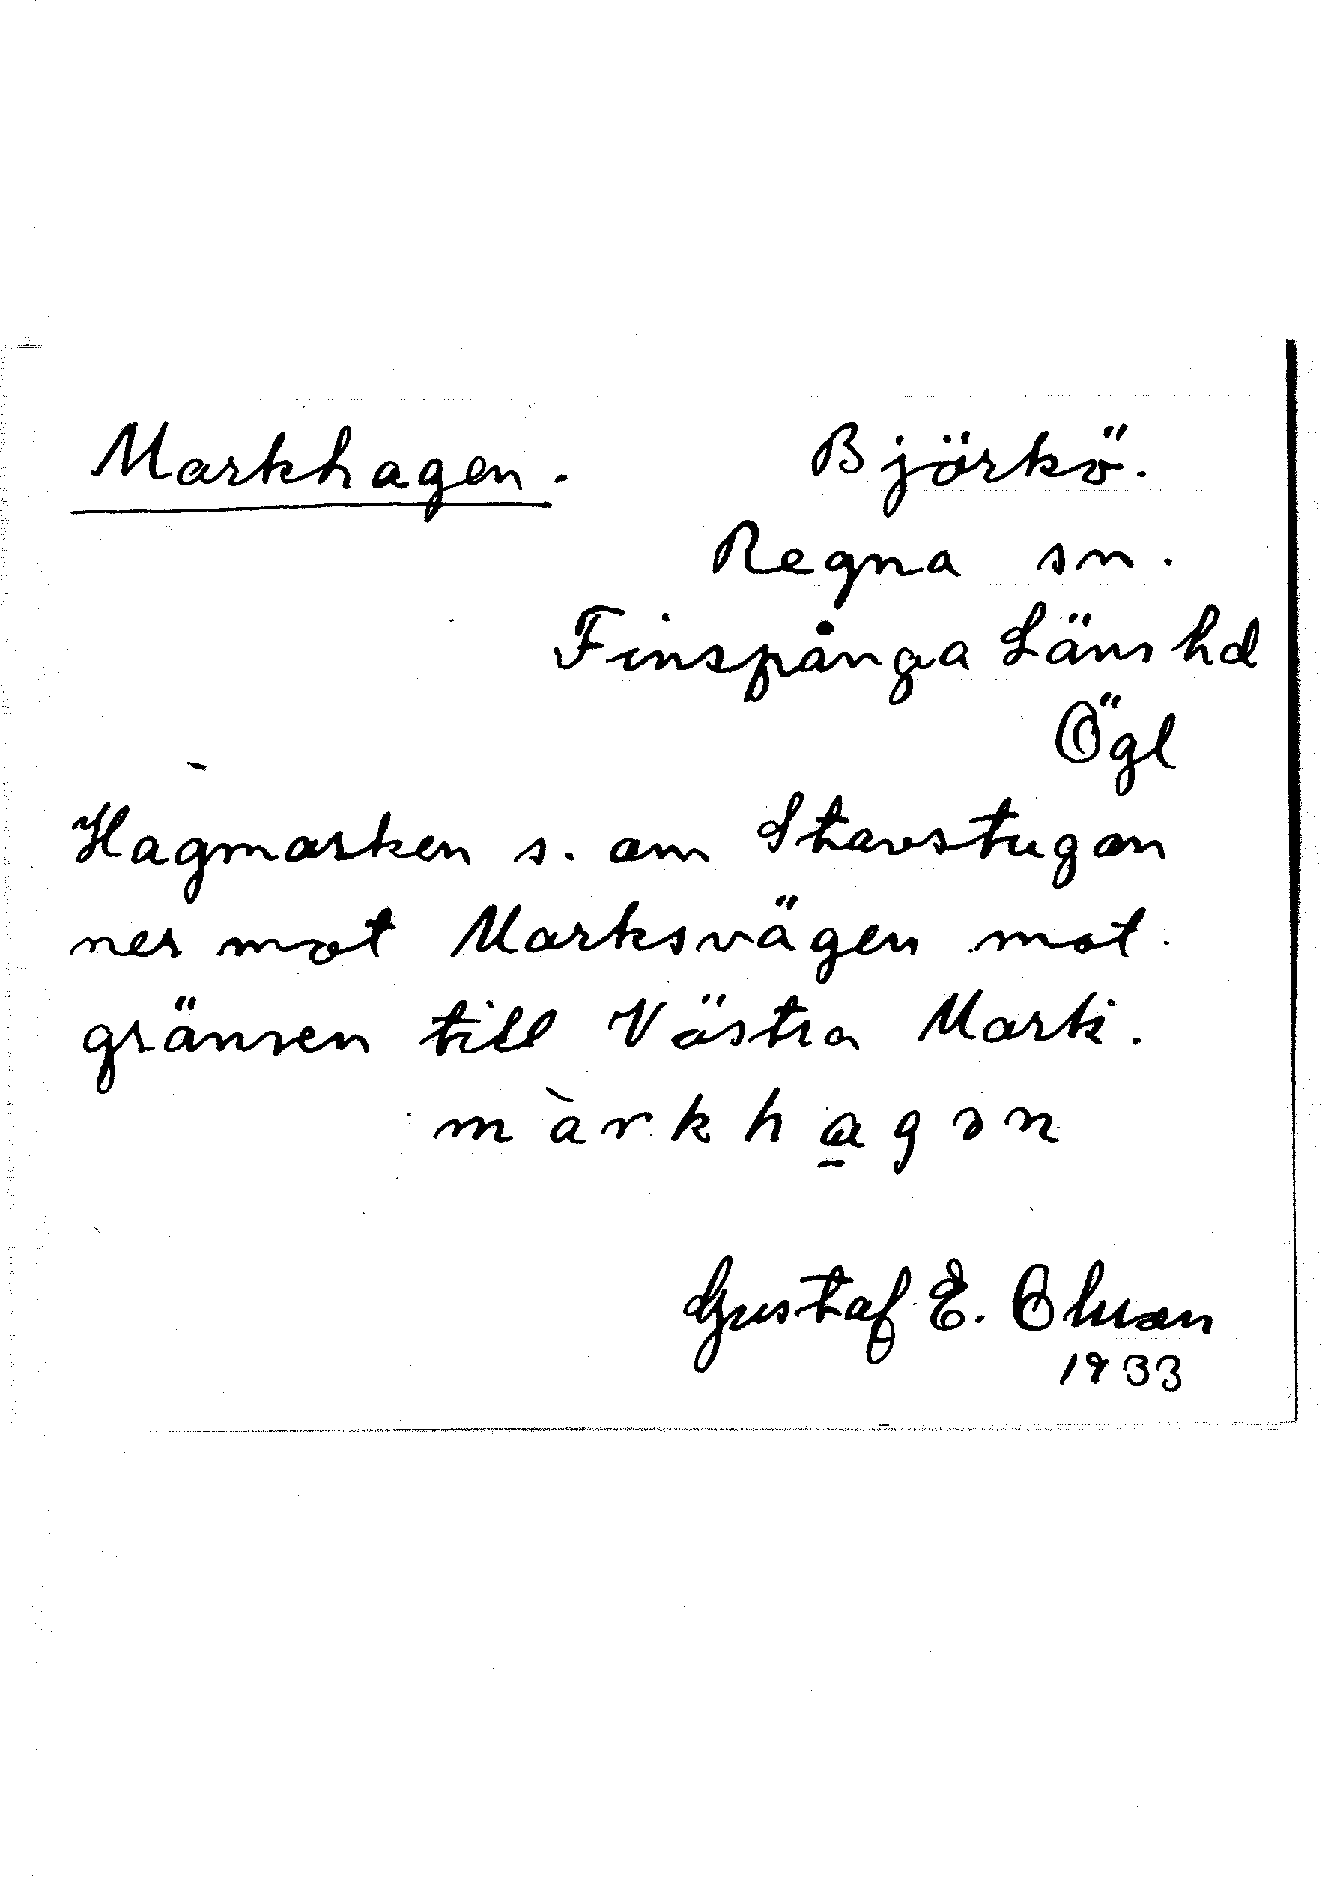 Markhagen. Björkö.
Regna sn.
Finspånga Läns hd
Ögl
Hagmarken s. om Stavstugan
ner mot Marksvägen mot
gränsen till Västra Mark.
màrkha̲gən
Gustaf E. Olsson
1933